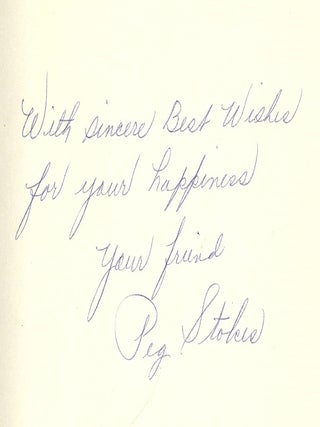 With sincere Best Wishes
for your happiness
Your friend
Peg Stokes